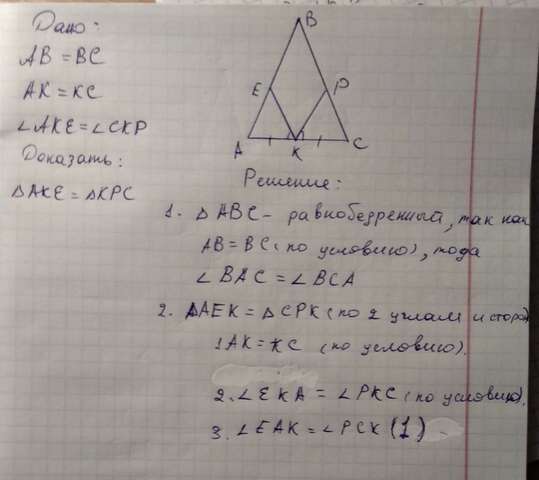 Дано:
AB = BC
AK = KC
∠AKE = ∠CKP
Доказать:
△AKE = △KPC
B
E
P
A
K
C
Решение:
1. △ABC - равнобедренный, так как
AB = BC (по условию), тогда
∠BAC = ∠BCA
2. △AEK = △CPK (по 2 углам и сторо
1 AK = KC (по условию).
2. ∠EKA = ∠PKC (по условию).
3. ∠EAK = ∠PCK (1)